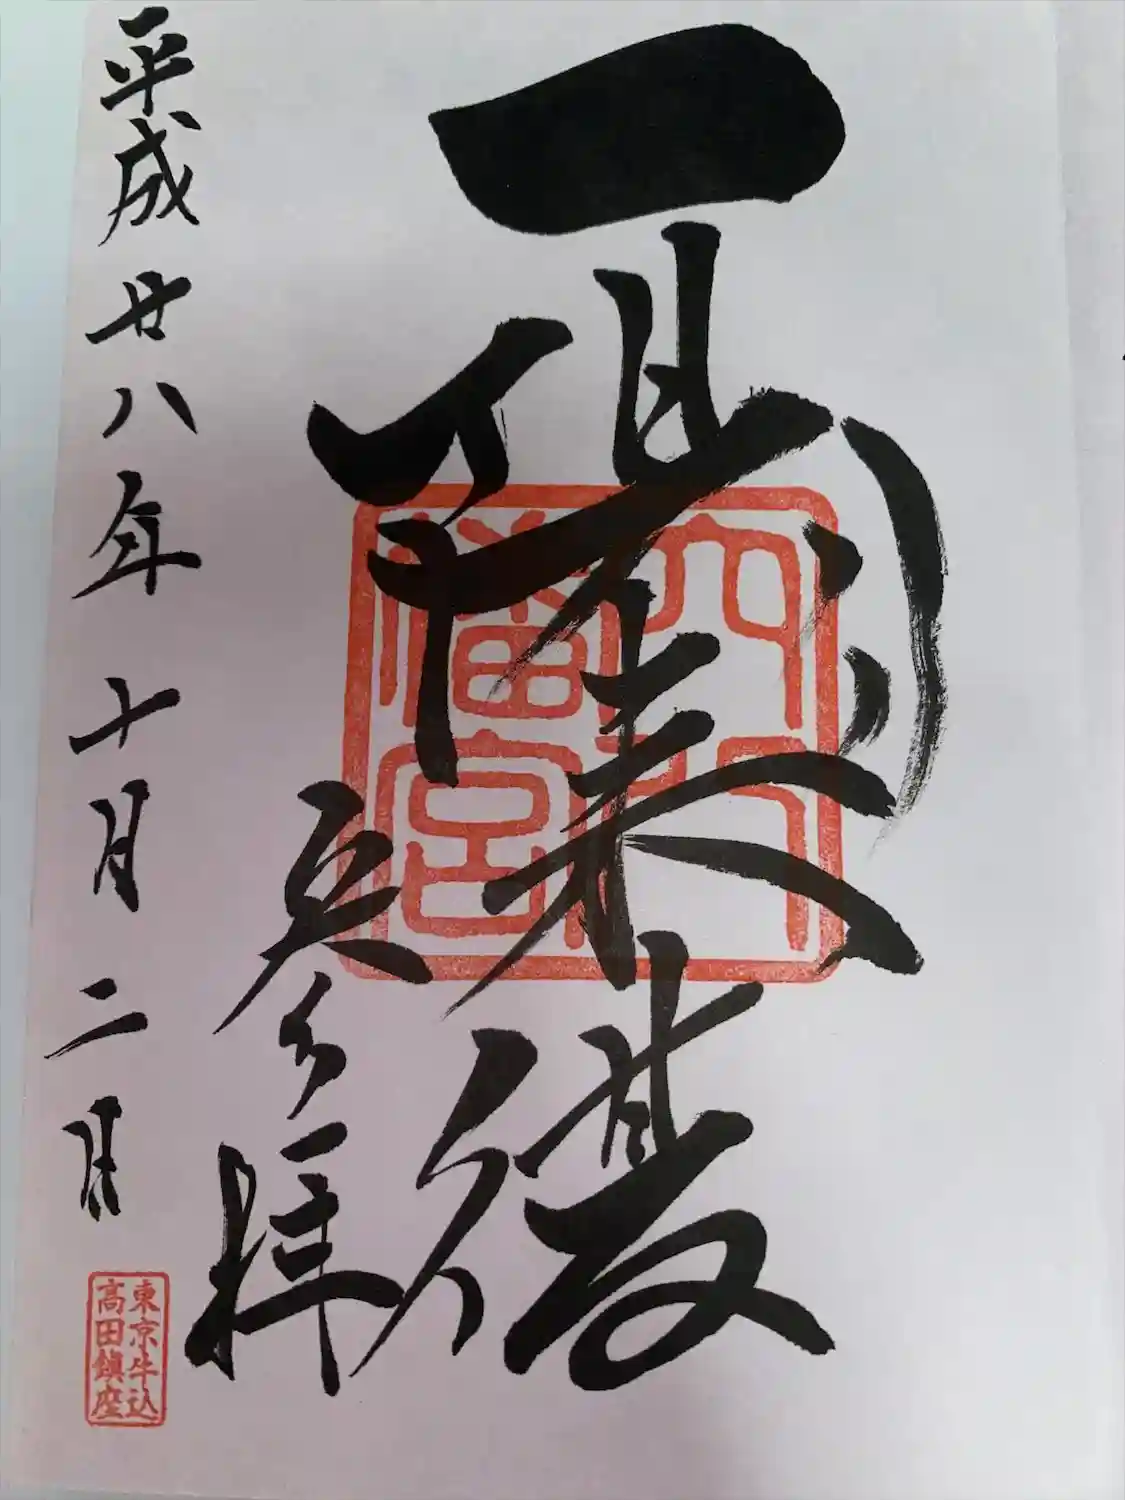 一陽来復
穴八
幡宮
参拝
平成廿八年十月二日
東京牛込
高田鎭座